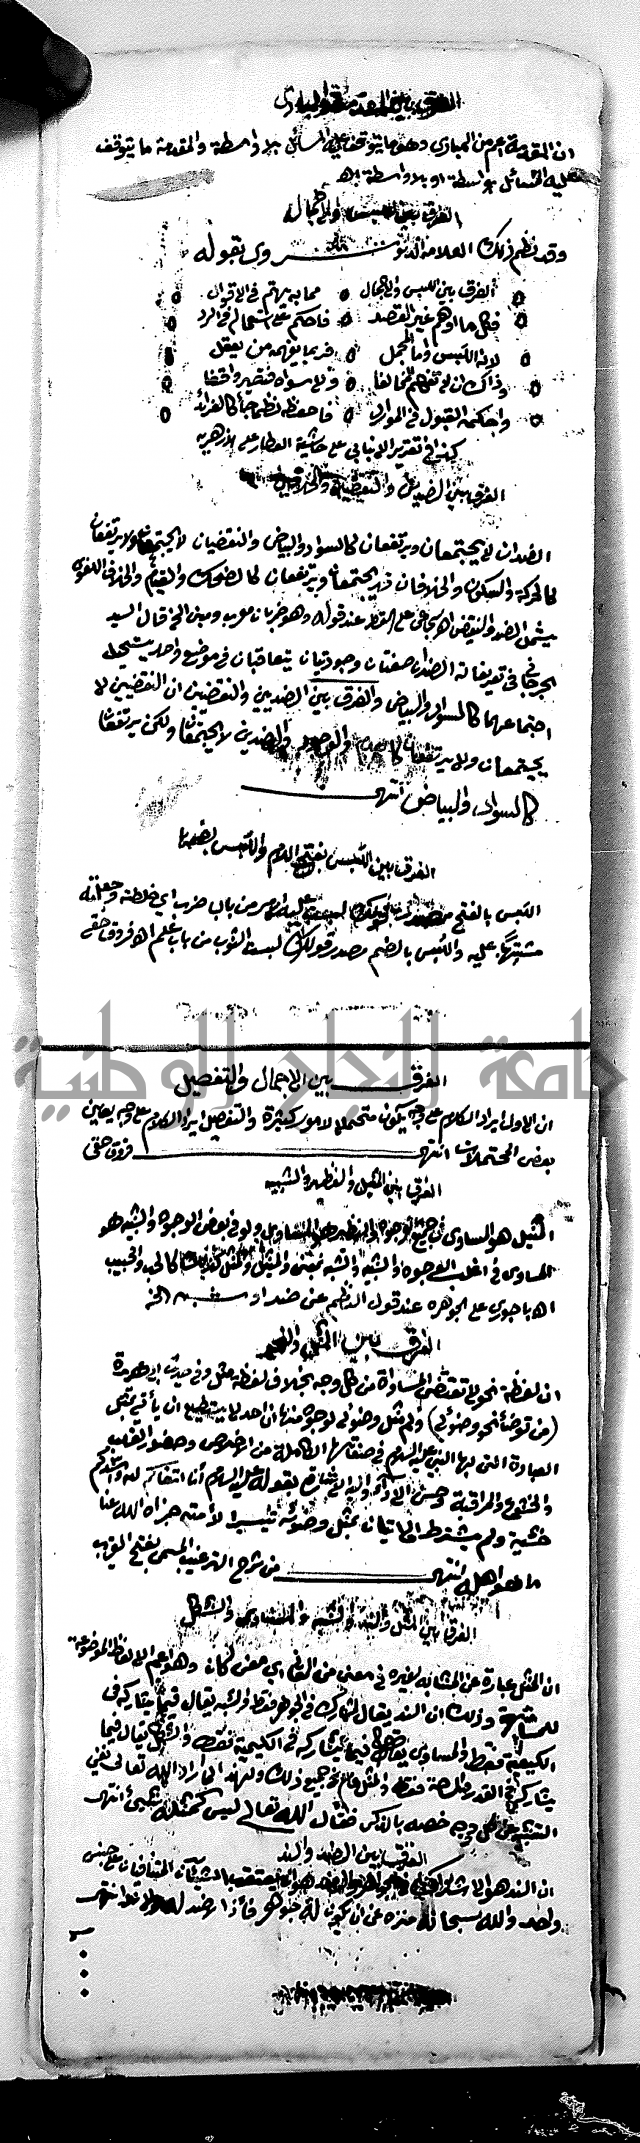 الفرق بين المقدمة والمبادي
ان المقدمة اعم من المبادي وهو ما يتوقف عليه المسائل بلا واسطة والمقدمة ما يتوقف
عليه المسائل بواسطة او بلا واسطة اه
الفرق بين اللبس والاجمال
وقد نظم ذلك العلامة بقوله
الفرق بين اللبس والاجمال ٥ مما به يهتم في الاقوال
فكل ما اوهم غير القصد ٥ فاحكم على استعماله في الرد
لانه اللبس واما المجمل ٥ فربما يفهم من يعقل
وذاك ان لم تفهم المخالفا ٥ ولا سواه فتصير واقفا
واحكمه القبول في الموارد ٥ فاحفظ نظما جاء كالفرائد
كذا في تقرير الانبابي على حاشية العطار على الازهريه
الفرق بين الضدين والنقيضين والخلافين
الضدان لا يجتمعان ويرتفعان كالسواد والبياض والنقيضان لا يجتمعان ولا يرتفعان
كالحركة والسكون والخلافان قد يجتمعان ويرتفعان كالضحك والقيام والخلاف اللغوي
يشمل الضد والنقيض اه على القطر عند قوله وهو ضربان معرب ومبني الخ قال السيد
الجرجاني في تعريفاته الضدان صفتان وجوديتان يتعاقبان في موضع واحد يستحيل
اجتماعهما كالسواد والبياض والفرق بين الضدين والنقيضين ان النقيضين لا
يجتمعان ولا يرتفعان كالعدم والوجود والضدين لا يجتمعان ولكن يرتفعان
كالسواد والبياض انتهى
الفرق بين اللبس بفتح اللام واللبس بضمها
اللبس بالفتح مصدر قولك لبست عليه الامر من باب ضرب اي خلطته وجعلته
مشتبها عليه واللبس بالضم مصدر قولك لبست الثوب من باب علم اه فروق حقي
جامعة النجاح الوطنية
الفرق بين الاجمال والتفصيل
ان الاول ايراد الكلام على وجه يكون متحملا لامور كثيرة والتفصيل ايراد الكلام على وجه يعين
بعض المحتملات انتهى فروق حقي
الفرق بين المثيل والنظير والشبيه
المثيل هو المساوي في جميع الوجوه والنظير هو المساوي ولو في بعض الوجوه والشبيه هو
المساوي في اغلب الوجوه والشبيه والشبه بمعنى والمثيل والمثل كذلك كالحب والحبيب
اه باجوري على الجوهره عند قول الناظم عن ضد او شبه الخ
الفرق بين المثل والنحو
ان لفظة نحو لا تقتضي المساواة من كل وجه بخلاف لفظة مثل وفي حديث ابي هريرة
(من توضأ نحو وضوئي) ولم مثل وضوئي لوجوه منها ان احد لا يستطيع ان يأتي بتلك
العبادة التي بها النبي عليه السلام في صفتها الكاملة من الاخلاص وحضور القلب
والخشوع والمراقبة وحسن الاداء واليه الاشارة بقوله عليه السلام أنا اتقاكم لله واشدكم
خشية ولم يشترط الاتيان بمثل وضوئه تيسيرا لأمته جزاه الله عنا
ما هو اهله انتهى من شرح الترغيب المسمى بفتح القريب
الفرق بين المثل والند والشبه والمساوي والشكل
ان المثل عبارة عن المشابه لغيره في معنى من المعاني اي معنى كان وهو اعم الالفاظ الموضوعة
للمشابهة وذلك ان الند يقال لما يشارك في الجوهر فقط والشبه يقال فيما يشاركه في
الكيفية فقط والمساوي يقال فيما يشاركه في الكمية فقط والشكل يقال فيما
يشاركه في القدر والمساحة فقط والمثل عام في جميع ذلك ولهذا لما اراد الله تعالى نفي
التشبيه عن كل وجه خصه بالذكر فقال الله تعالى ليس كمثله شيء انتهى
الفرق بين الضد والند
ان الند هو الاشتراك في الجوهر والضد هو ان يعتقب الشيئان المتنافيان على جنس
واحد والله سبحانه منزه عن ان يكون له جوهر فإذا لا ضد له ولا ند انتهى